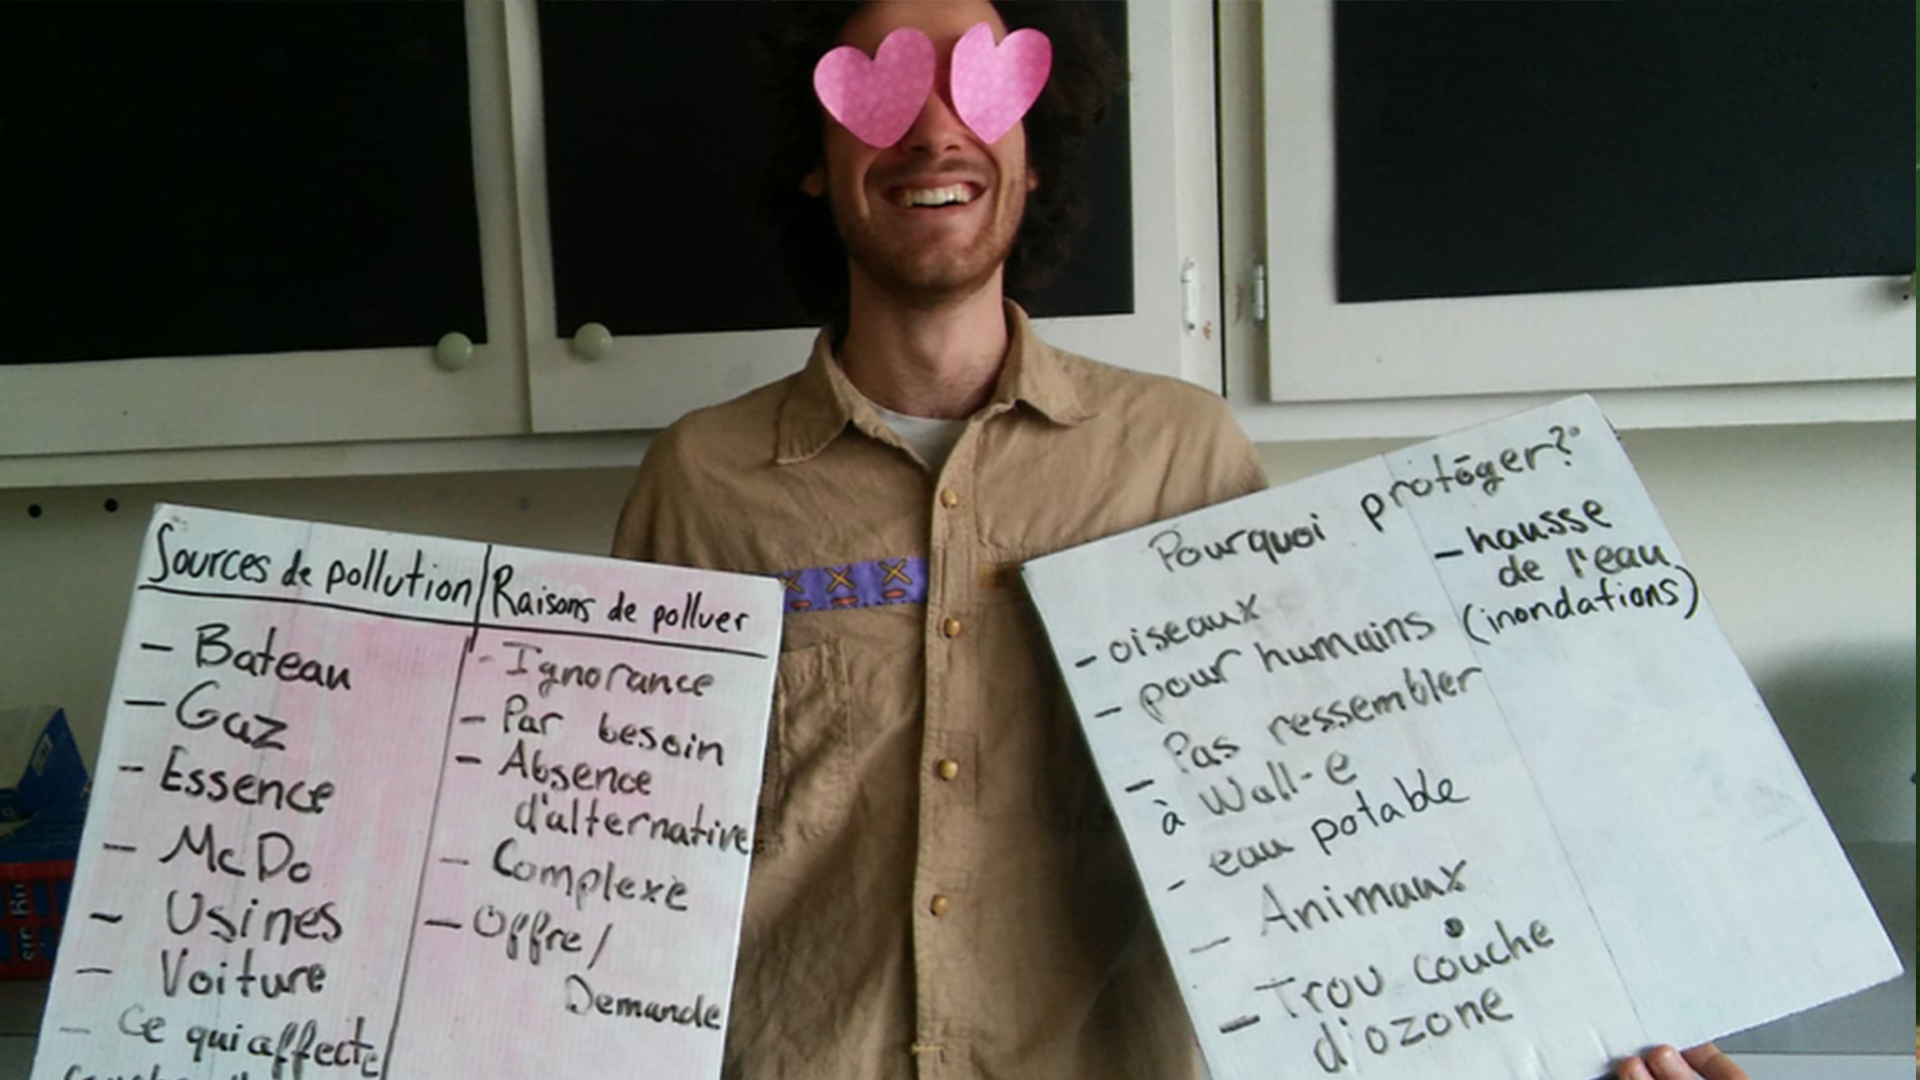 Sources de pollution
- Bateau
- Gaz
- Essence
- McDo
- Usines
- Voiture
- Ce qui affecte
Raisons de polluer
- Ignorance
- Par besoin
- Absence
d'alternative
- Complexe
- Offre/
Demande
Pourquoi protéger?
- oiseaux
- pour humains
- Pas ressembler
à Wall-e
- eau potable
- Animaux
- Trou couche
d'ozone
- hausse
de l'eau
(inondations)